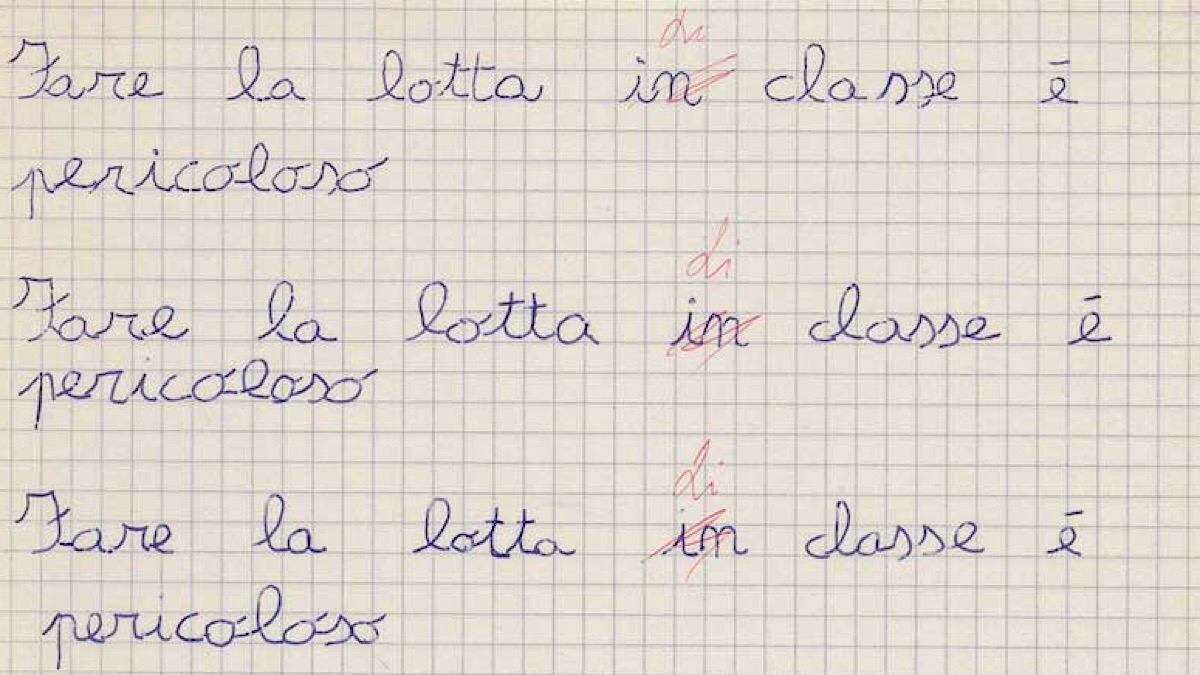 di
Fare la lotta in classe è
pericoloso
di
Fare la lotta in classe è
pericoloso
di
Fare la lotta in classe è
pericoloso